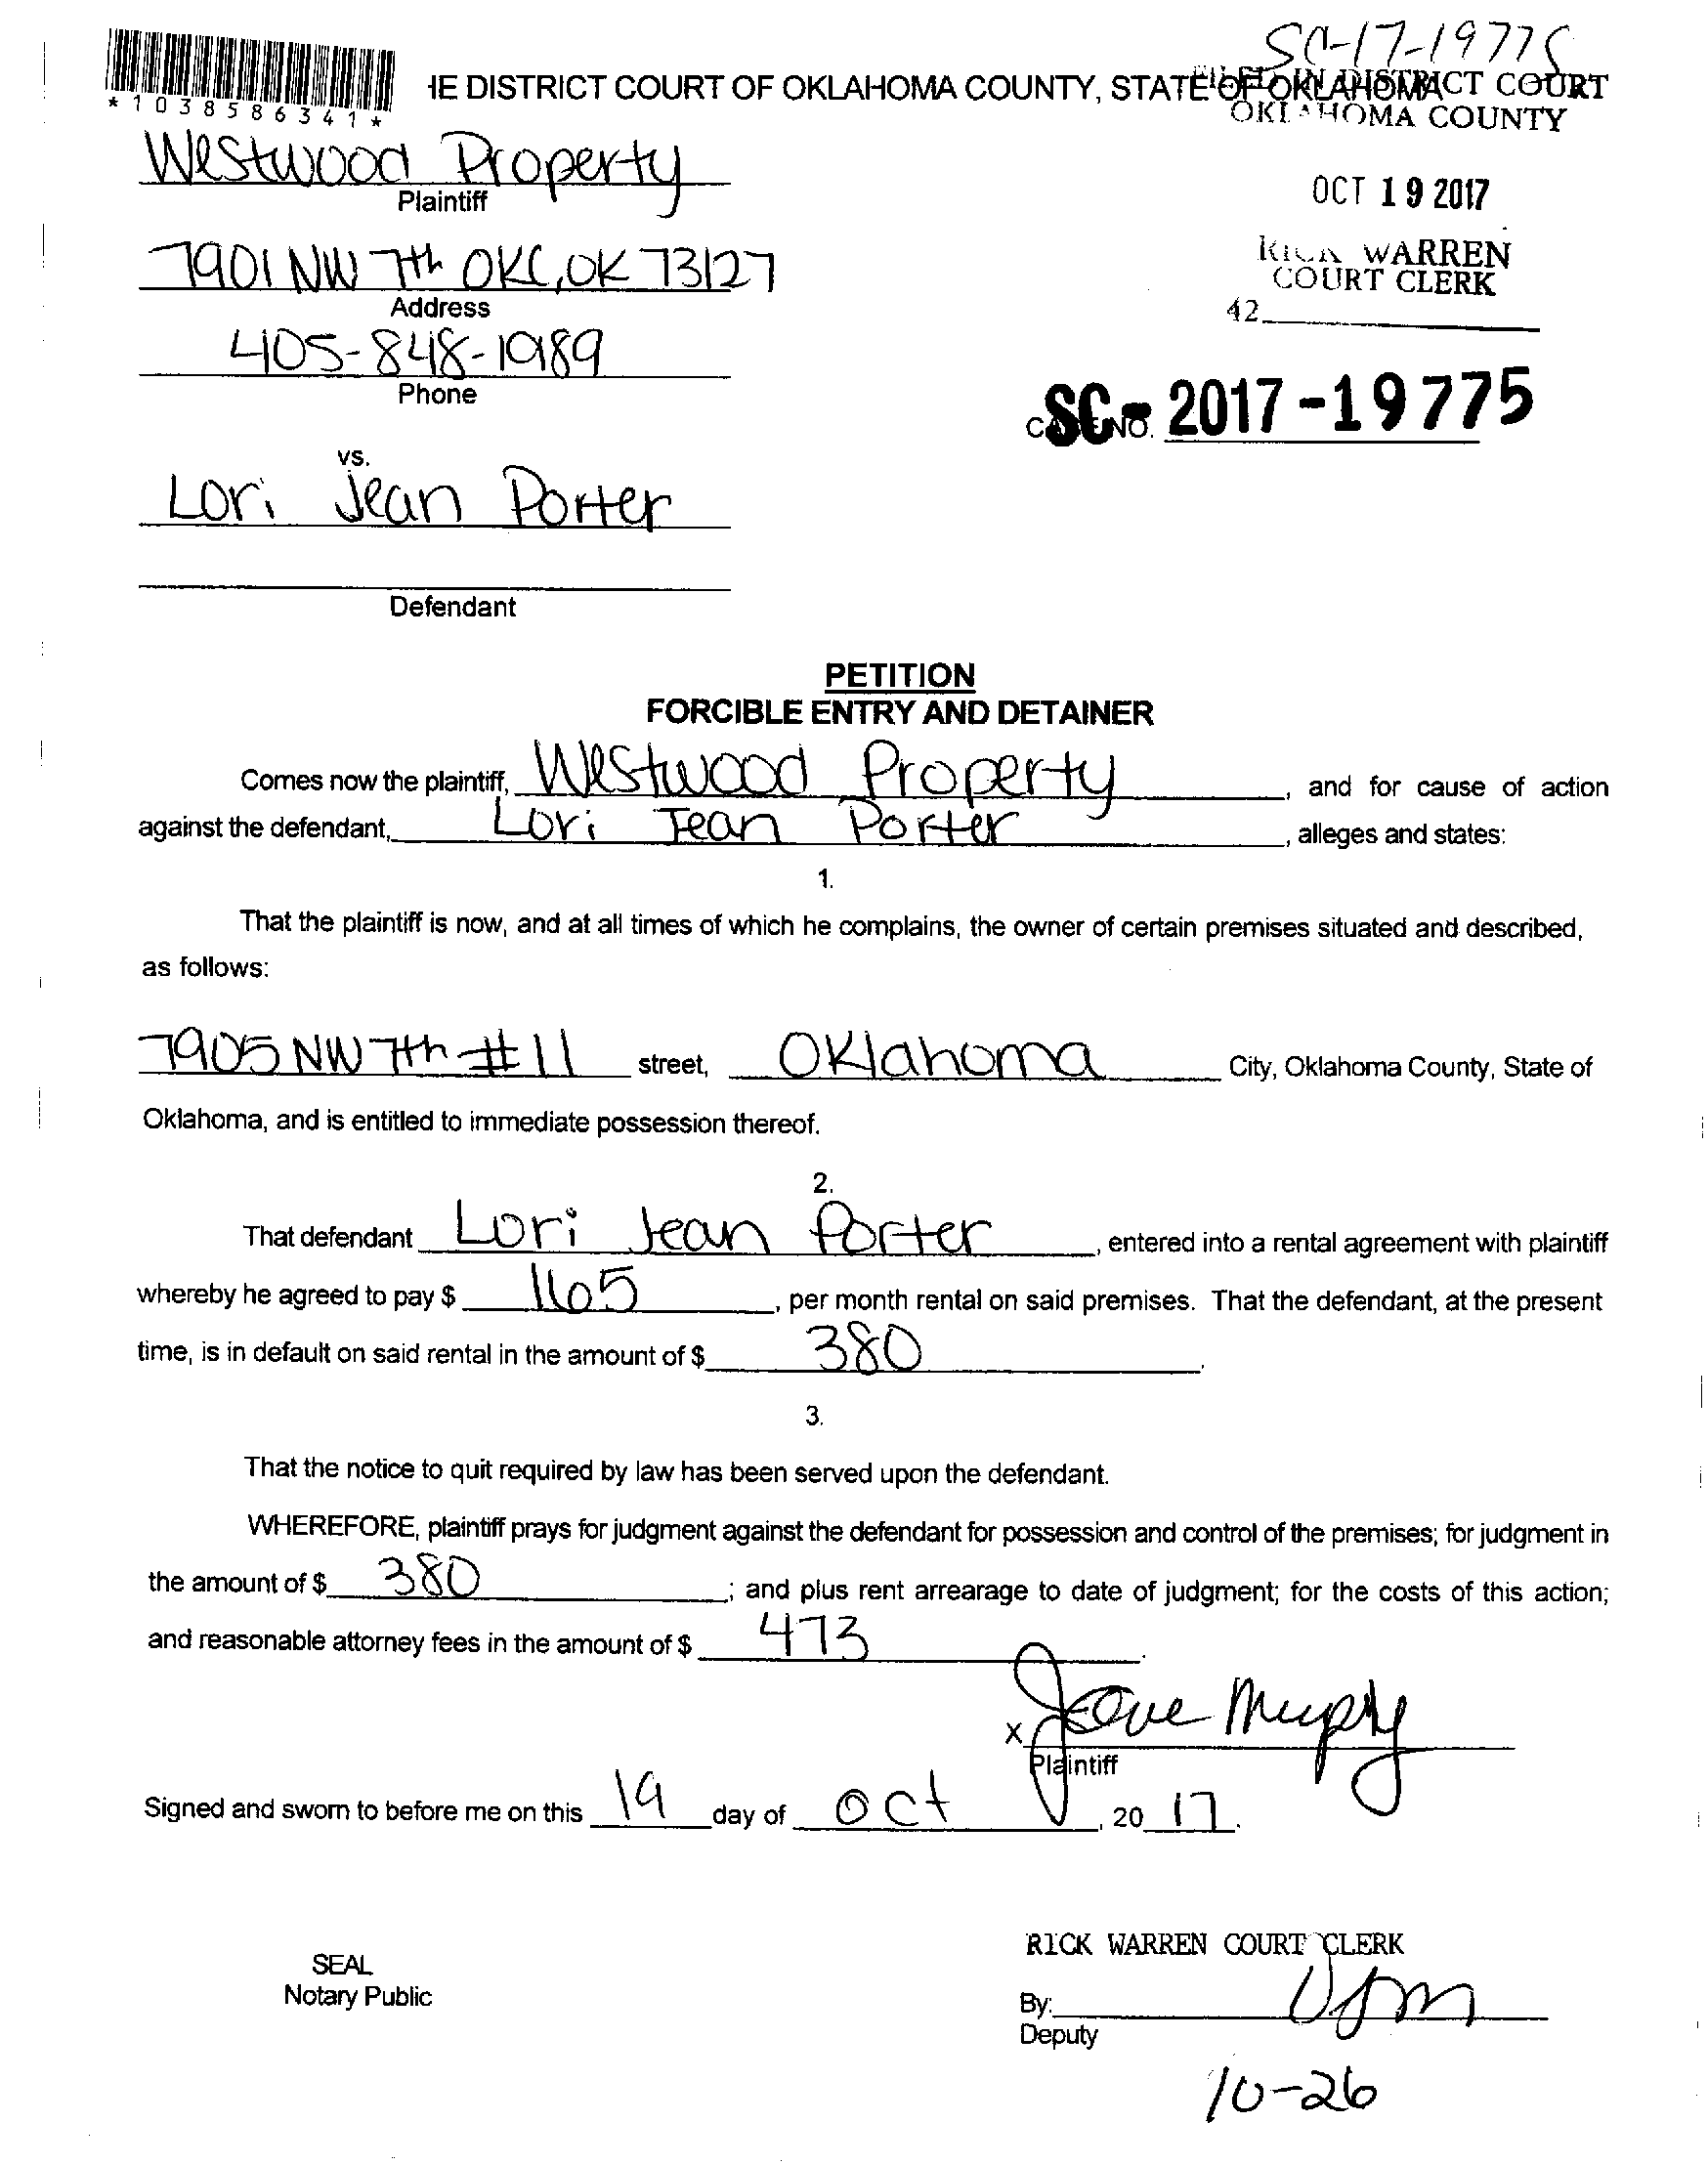 SC-17-19775
IE DISTRICT COURT OF OKLAHOMA COUNTY, STATE OF OKLAHOMA
FILED IN DISTRICT COURT
OKLAHOMA COUNTY
*1038586341*
Westwood Property
Plaintiff
OCT 19 2017
7901 NW 7th OKC, OK 73127
Address
RICK WARREN
COURT CLERK
42
405-848-1989
Phone
CASE NO. SC-2017-19775
vs.
Lori Jean Porter
Defendant
PETITION
FORCIBLE ENTRY AND DETAINER
Comes now the plaintiff, Westwood Property, and for cause of action
against the defendant, Lori Jean Porter, alleges and states:
1.
That the plaintiff is now, and at all times of which he complains, the owner of certain premises situated and described,
as follows:
7905 NW 7th #11 street, Oklahoma City, Oklahoma County, State of
Oklahoma, and is entitled to immediate possession thereof.
2.
That defendant Lori Jean Porter, entered into a rental agreement with plaintiff
whereby he agreed to pay $ 165, per month rental on said premises. That the defendant, at the present
time, is in default on said rental in the amount of $ 380.
3.
That the notice to quit required by law has been served upon the defendant.
WHEREFORE, plaintiff prays for judgment against the defendant for possession and control of the premises; for judgment in
the amount of $ 380; and plus rent arrearage to date of judgment; for the costs of this action;
and reasonable attorney fees in the amount of $ 473.
x Murphy
Plaintiff
Signed and sworn to before me on this 19 day of Oct, 20 17.
RICK WARREN COURT CLERK
SEAL
Notary Public
By:
Deputy
10-26